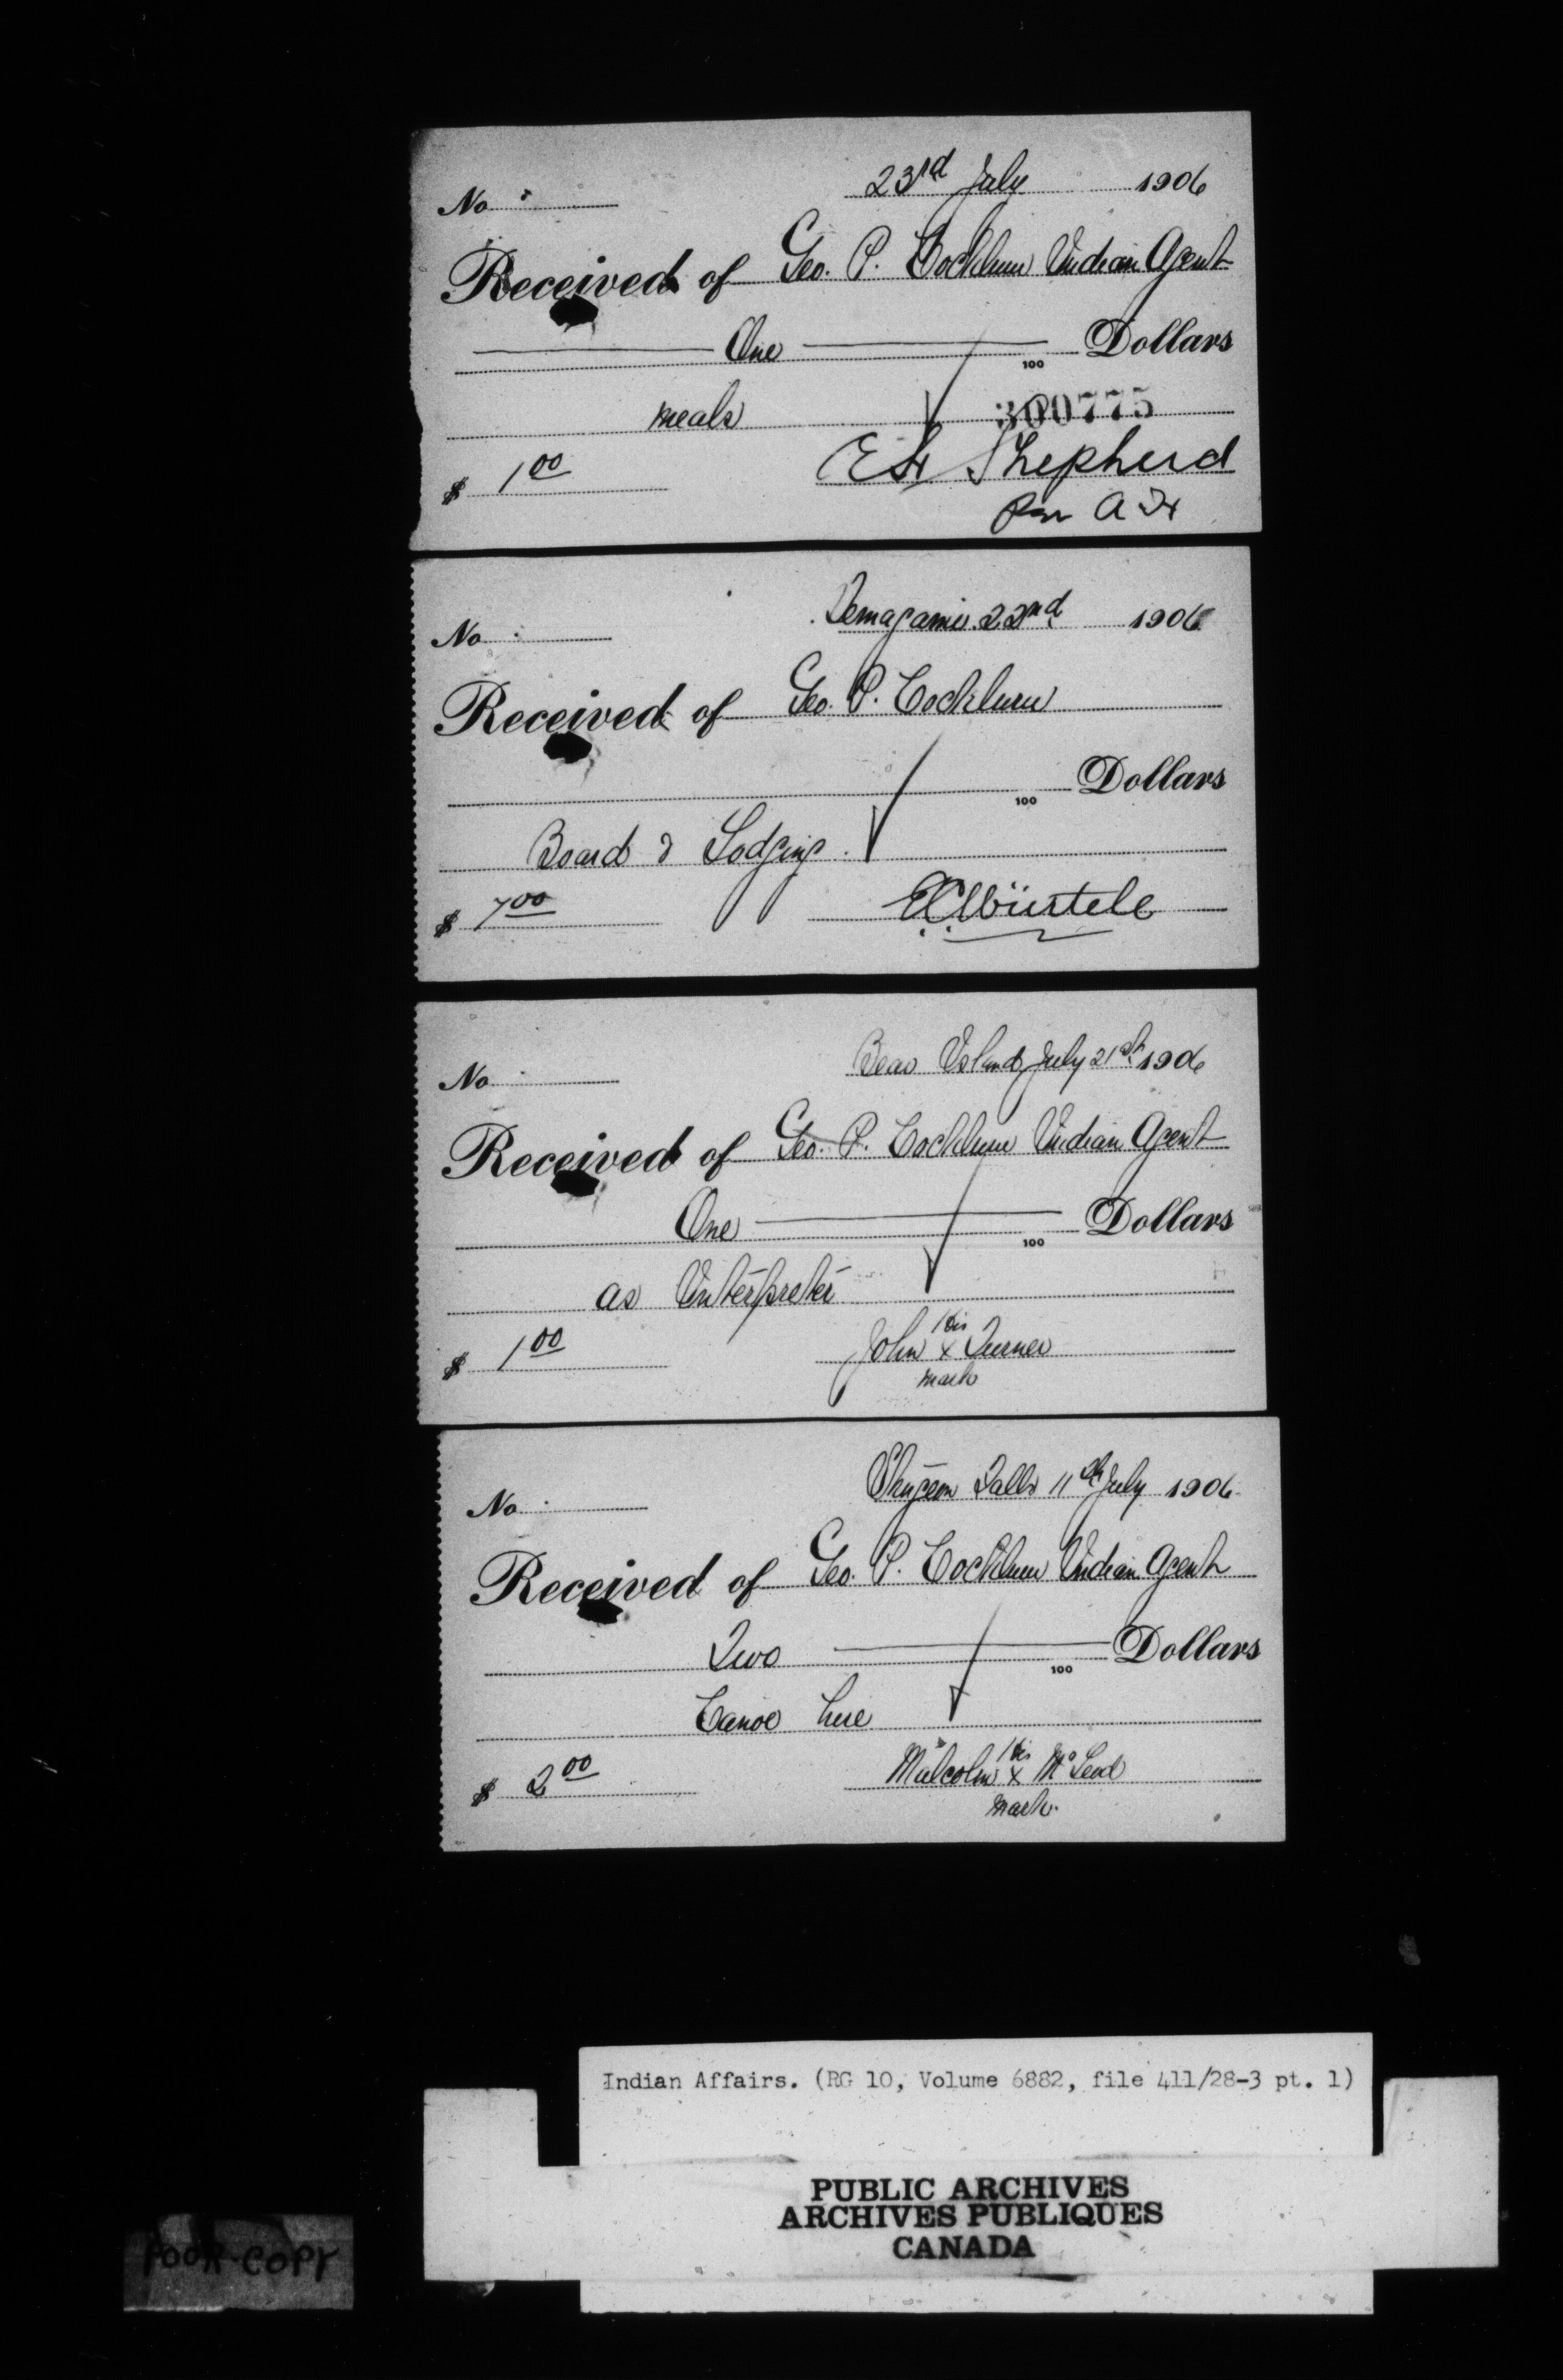 No 23rd July 1906
Received of Geo. P. Cockburn Indian Agent
One 100 Dollars
meals 300775
$ 1.00 E H Shepherd
Per A H
No Temagami 22nd 1906
Received of Geo. P. Cockburn
100 Dollars
Board & Lodging.
$ 7.00 E.C. Würtele
No Bear Island July 21st 1906
Received of Geo. P. Cockburn Indian Agent
One 100 Dollars
as Interpreter
$ 1.00 John his x Turner
mark
No Sturgeon Falls 11th July 1906
Received of Geo. P. Cockburn Indian Agent
Two 100 Dollars
Canoe hire
$ 2.00 Malcolm his x McLeod
mark.
Indian Affairs. (RG 10, Volume 6882, file 411/28-3 pt. 1)
PUBLIC ARCHIVES
ARCHIVES PUBLIQUES
CANADA
POOR COPY